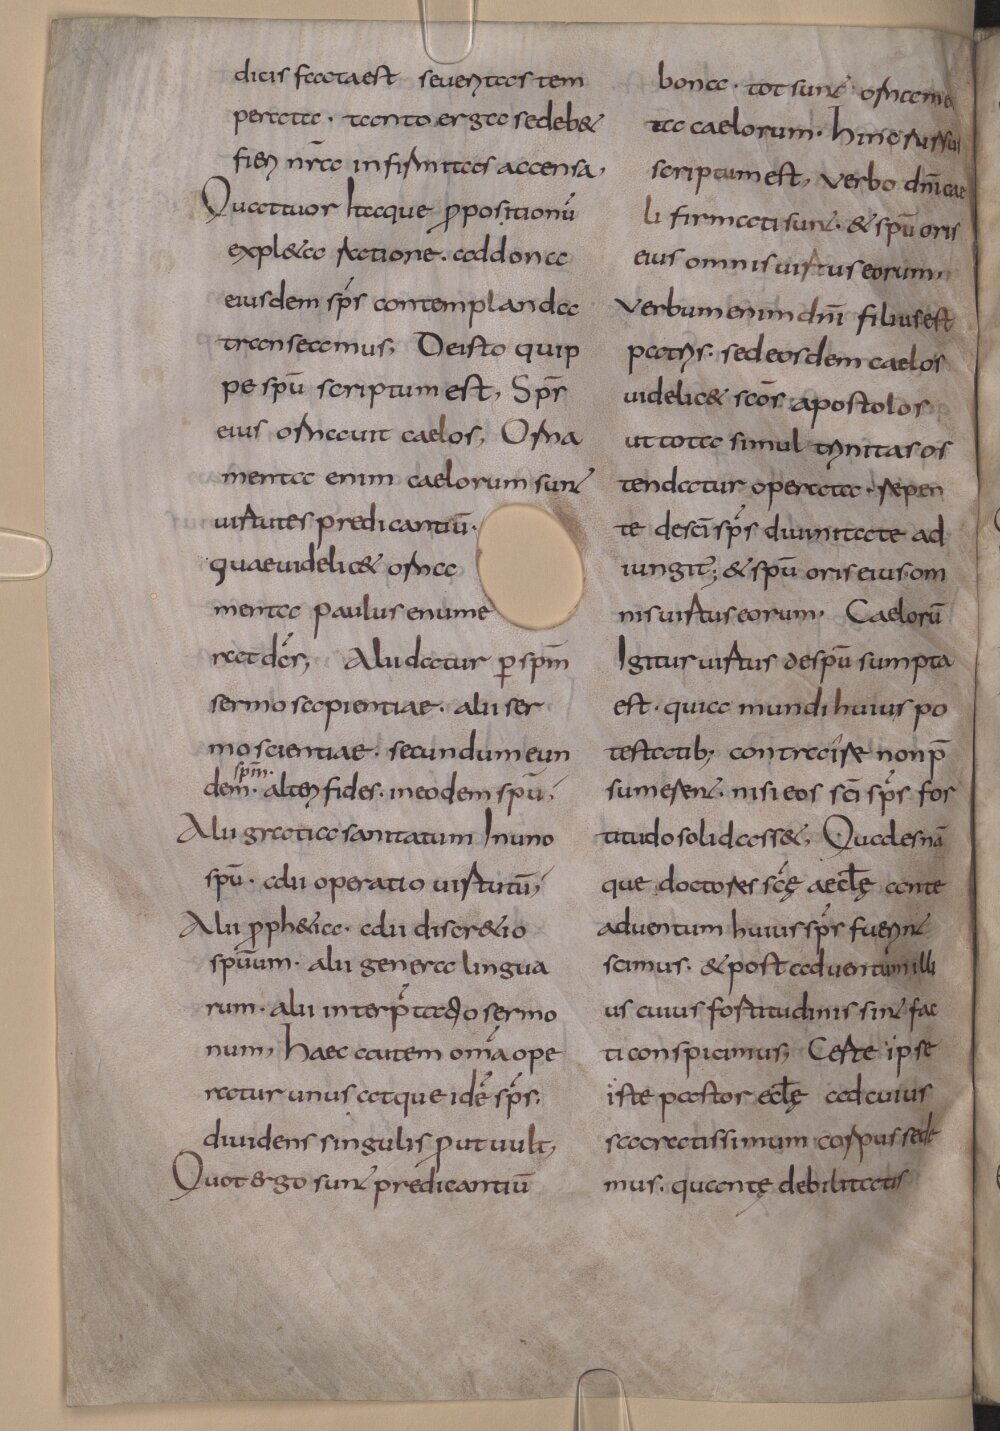 dicis facta est severitas tem
perata. tanto erga se deb&
fieri nr̄a infirmitas accensa,
Quattuor Itaque ꝓpositionū
expl&a ratione. ad dona
eiusdem sp̄s contemplanda
transeamus, De isto quip
pe spū scriptum est, Sp̄s
eius ornavit caelos, Orna
menta enim caelorum sunt
virtutes predicantiū.
quae videlic& orna
menta paulus enume
rat dc̄s, Alii datur ꝑ sp̄m
sermo sapientiae. alii ser
mo scientiae. secundum eun
dem sp̄m. alteri fides. in eodem spū,
Alii gratia sanitatum In uno
spū. alii operatio virtutū,
Alii ꝓph&ia. alii discr&io
sp̄uum. alii genera lingua
rum. alii interp̄tatio sermo
num, haec autem om̄a ope
ratur unus atque idē sp̄s.
dividens singulis ꝓut vult,
Quot ergo sunt predicantiū
bona. tot sunt ornamen
ta caelorum. hinc rursus
scriptum est, verbo dn̄i cae
li firmati sunt. & spū oris
eius omnis virtus eorum,
verbum enim dn̄i filius est
patris. sed eosdem caelos
videlic& sc̄os apostolos
ut tota simul trinitas os
tendatur operata. repen
te de sc̄i sp̄s divinitate ad
iungit; & spū oris eius om
nis virtus eorum, Caelorū
Igitur virtus de spū sumpta
est. quia mundi huius po
testatib; contraire non p̄
sumerent. nisi eos sc̄i sp̄s for
titudo solidass&, Quales nā
que doctores sc̄ę aecl̄ę ante
adventum huius sp̄s fuerint
scimus. & post adventum illi
us cuius fortitudinis sint fac
ti conspicimus, Certe ipse
iste pastor ecl̄ę ad cuius
sacratissimum corpus sede
mus. quantę debilitatis